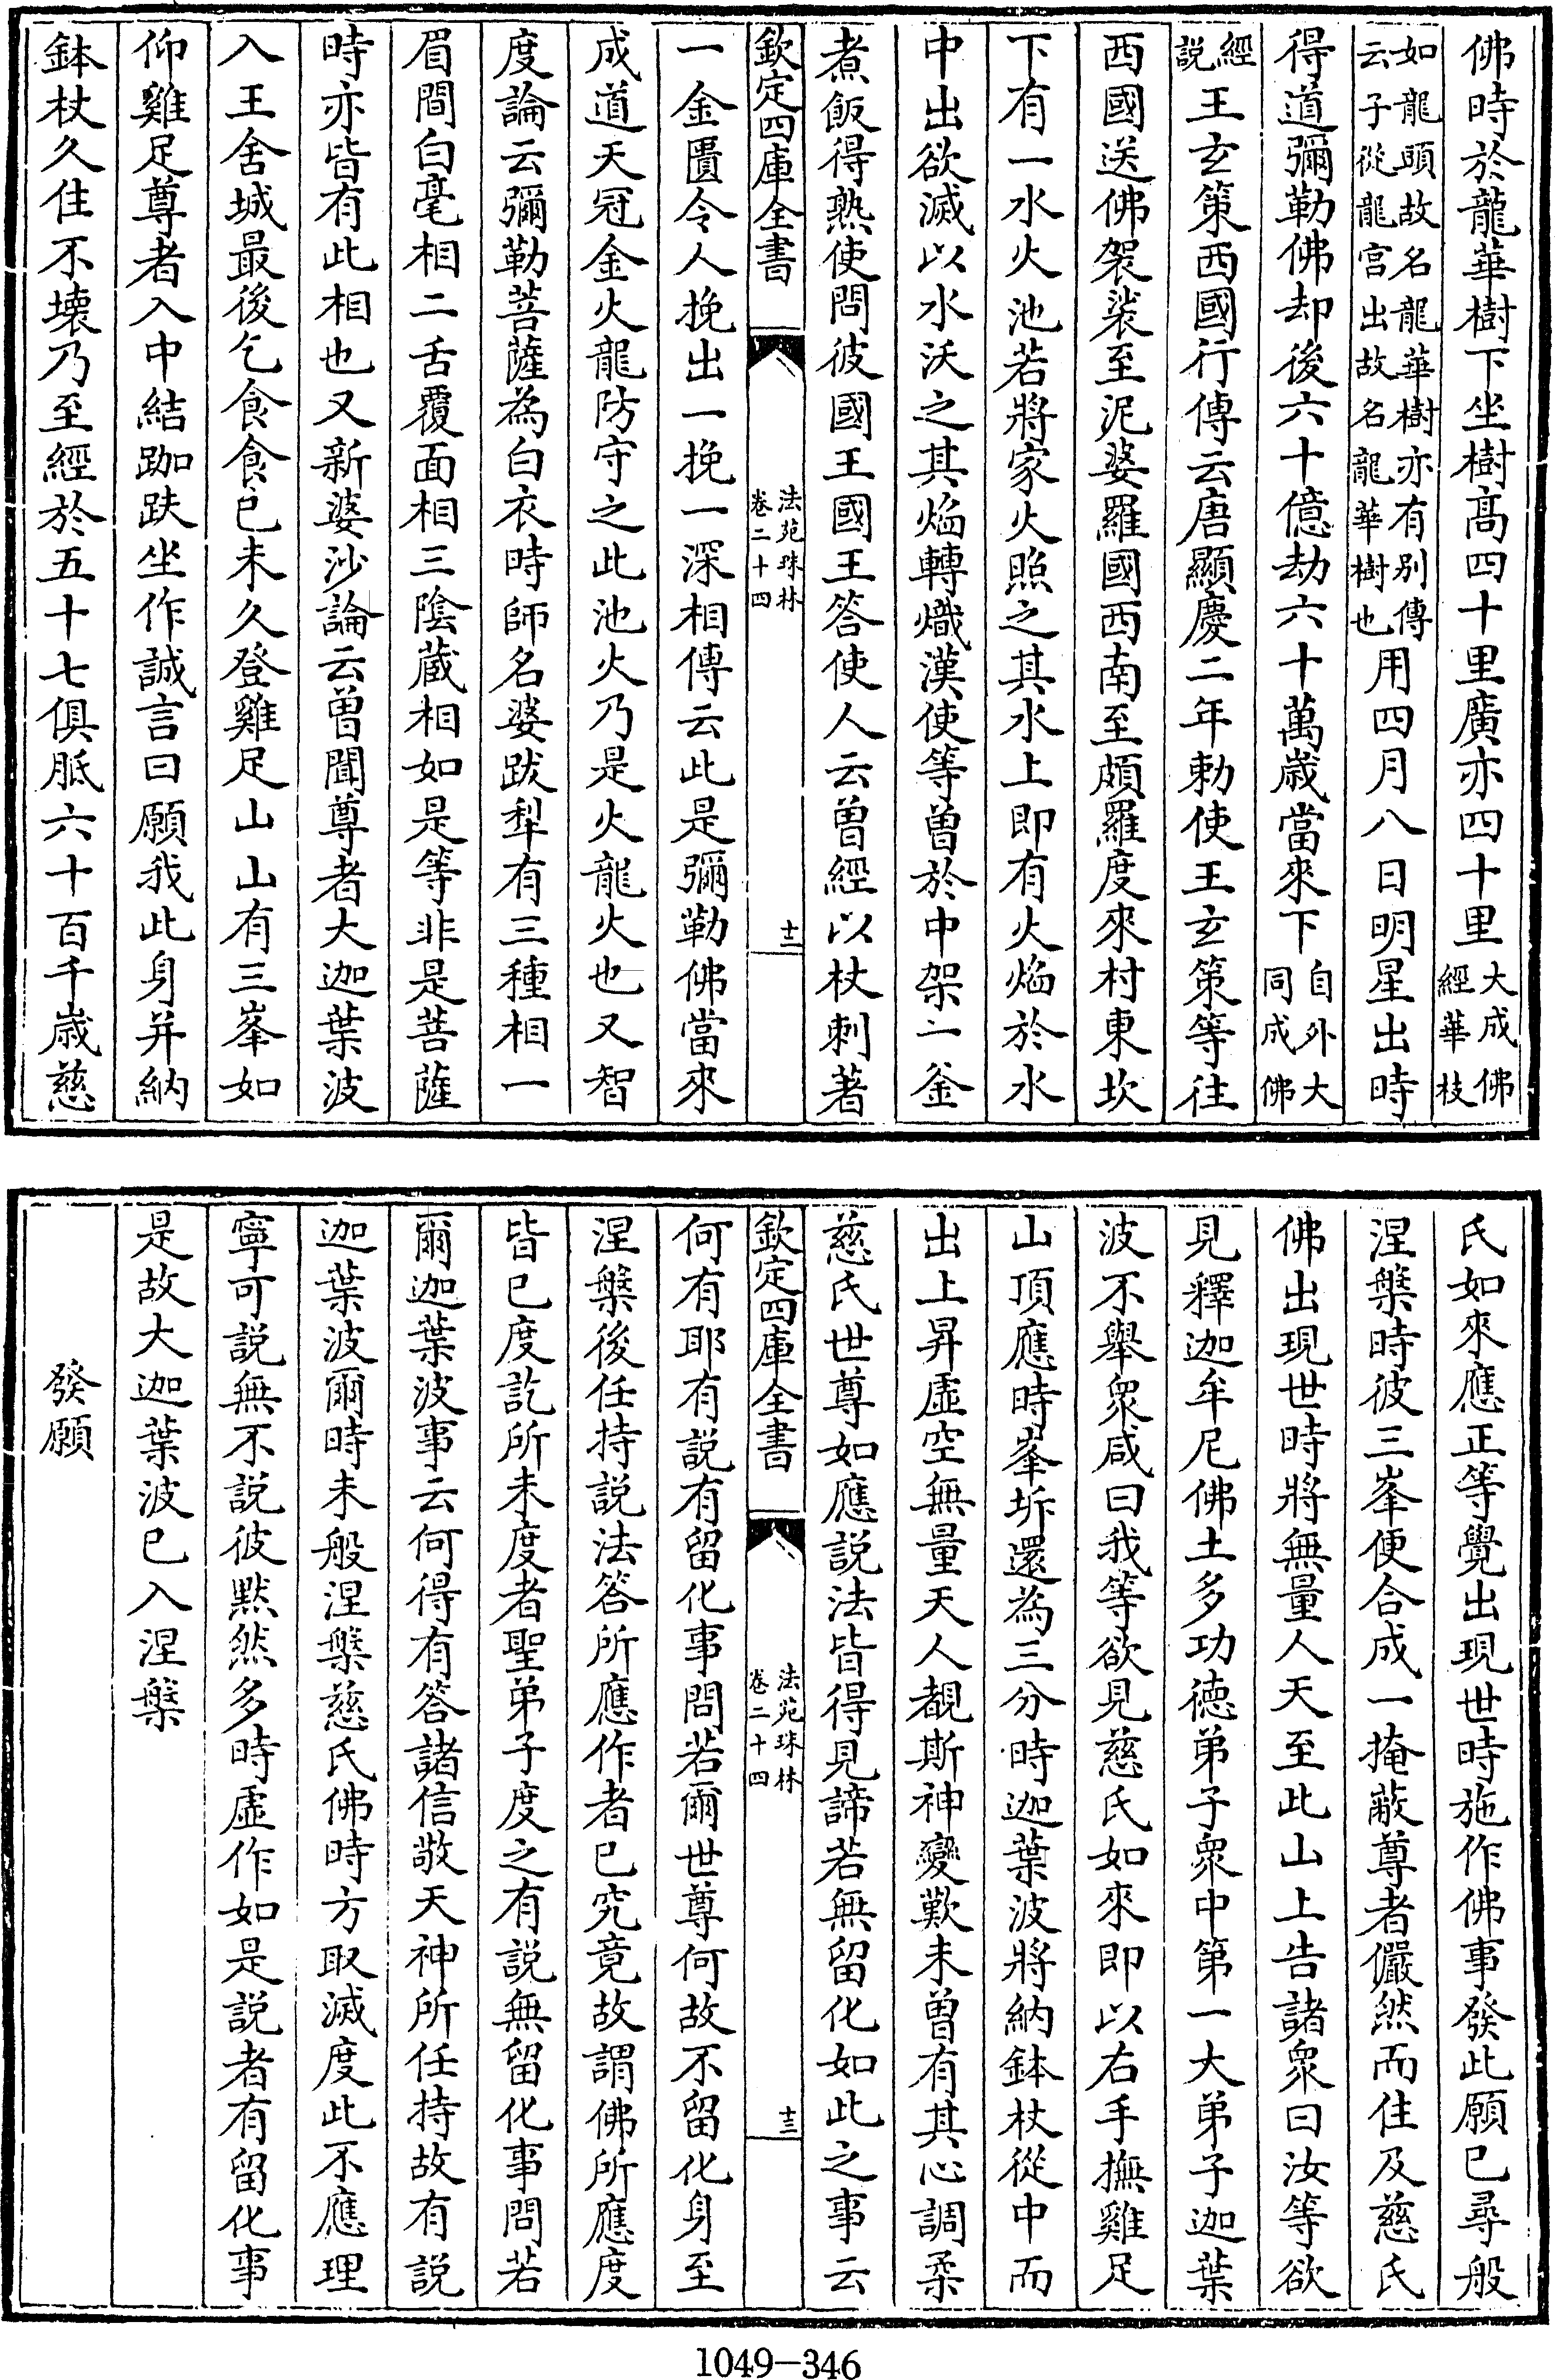 佛時於龍華樹下坐樹髙四十里廣亦四十里大成佛經華枝
如龍頭故名龍華樹亦有别傳云子從龍宫出故名龍華樹也用四月八日明星出時
得道彌勒佛却後六十億劫六十萬歳當來下自外大同成佛
經説王玄策西國行傳云唐顯慶二年勅使王玄策等往
西國送佛袈裟至泥婆羅國西南至頗羅度來村東坎
下有一水火池若將家火照之其水上即有火焰於水
中出欲滅以水沃之其焰轉熾漢使等曾於中架一釜
煮飯得熟使問彼國王國王答使人云曾經以杖刺著
欽定四庫全書
法苑珠林
卷二十四
十二
一金匱令人挽出一挽一深相傳云此是彌勒佛當來
成道天冠金火龍防守之此池火乃是火龍火也又智
度論云彌勒菩薩為白衣時師名婆跋犁有三種相一
眉間白毫相二舌覆面相三陰蔵相如是等非是菩薩
時亦皆有此相也又新婆沙論云曽聞尊者大迦葉波
入王舍城最後乞食食已未久登雞足山山有三峯如
仰雞足尊者入中結跏趺坐作誠言曰願我此身并納
鉢杖久住不壊乃至經於五十七俱胝六十百千歳慈
氏如來應正等覺出現世時施作佛事發此願已尋般
涅槃時彼三峯便合成一掩蔽尊者儼然而住及慈氏
佛出現世時將無量人天至此山上告諸衆曰汝等欲
見釋迦牟尼佛土多功徳弟子衆中第一大弟子迦葉
波不舉衆咸曰我等欲見慈氏如來即以右手撫雞足
山頂應時峯坼還為三分時迦葉波將納鉢杖從中而
出上昇虚空無量天人覩斯神變歎未曽有其心調柔
慈氏世尊如應説法皆得見諦若無留化如此之事云
欽定四庫全書
法苑珠林
卷二十四
十三
何有耶有説有留化事問若爾世尊何故不留化身至
涅槃後任持説法答所應作者已究竟故謂佛所應度
皆已度訖所未度者聖弟子度之有説無留化事問若
爾迦葉波事云何得有答諸信敬天神所任持故有説
迦葉波爾時未般涅槃慈氏佛時方取滅度此不應理
寧可説無不説彼黙然多時虚作如是説者有留化事
是故大迦葉波已入涅槃
發願
1049-346